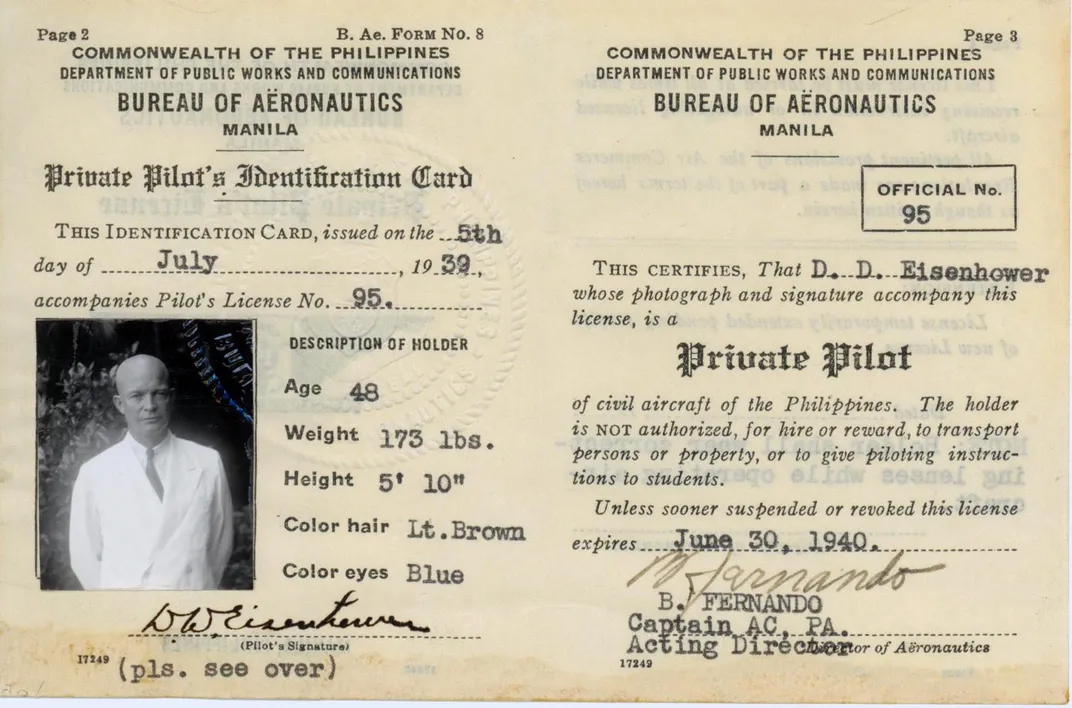 Page 2
B. Ae. FORM No. 8
COMMONWEALTH OF THE PHILIPPINES
DEPARTMENT OF PUBLIC WORKS AND COMMUNICATIONS
BUREAU OF AËRONAUTICS
MANILA
Private Pilot's Identification Card
THIS IDENTIFICATION CARD, issued on the 5th
day of July, 1939,
accompanies Pilot's License No. 95.
DESCRIPTION OF HOLDER
Age 48
Weight 173 lbs.
Height 5' 10"
Color hair Lt.Brown
Color eyes Blue
D.W. Eisenhower
(Pilot's Signature)
17249
(pls. see over)
Page 3
COMMONWEALTH OF THE PHILIPPINES
DEPARTMENT OF PUBLIC WORKS AND COMMUNICATIONS
BUREAU OF AËRONAUTICS
MANILA
OFFICIAL No.
95
THIS CERTIFIES, That D. D. Eisenhower
whose photograph and signature accompany this
license, is a
Private Pilot
of civil aircraft of the Philippines. The holder
is NOT authorized, for hire or reward, to transport
persons or property, or to give piloting instruc-
tions to students.
Unless sooner suspended or revoked this license
expires June 30, 1940.
B Fernando
B. FERNANDO
Captain AC, PA.
Acting Director
Director of Aëronautics
17249